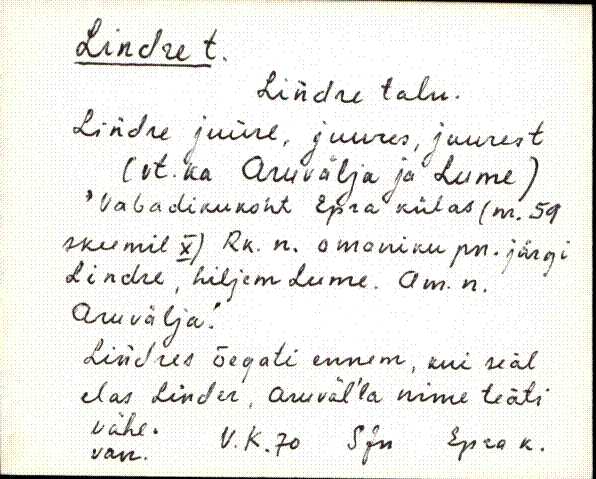 Lindre t.
Lińdre talu.
Lińdre juure, juures, juurest
(vt. ka Aruvälja ja Lume)
"Vabadikukoht Epra külas (m. 59
skeemil X) Rk. n. omaniku pn. järgi
Lindre, hiljem Lume. Am. n.
Aruvälja."
Lińdres öegati ennem, kui seäl
elas Linder, Aruväl'la nime teäti
vähe.
van. V.K. 70 Sjn Epra k.